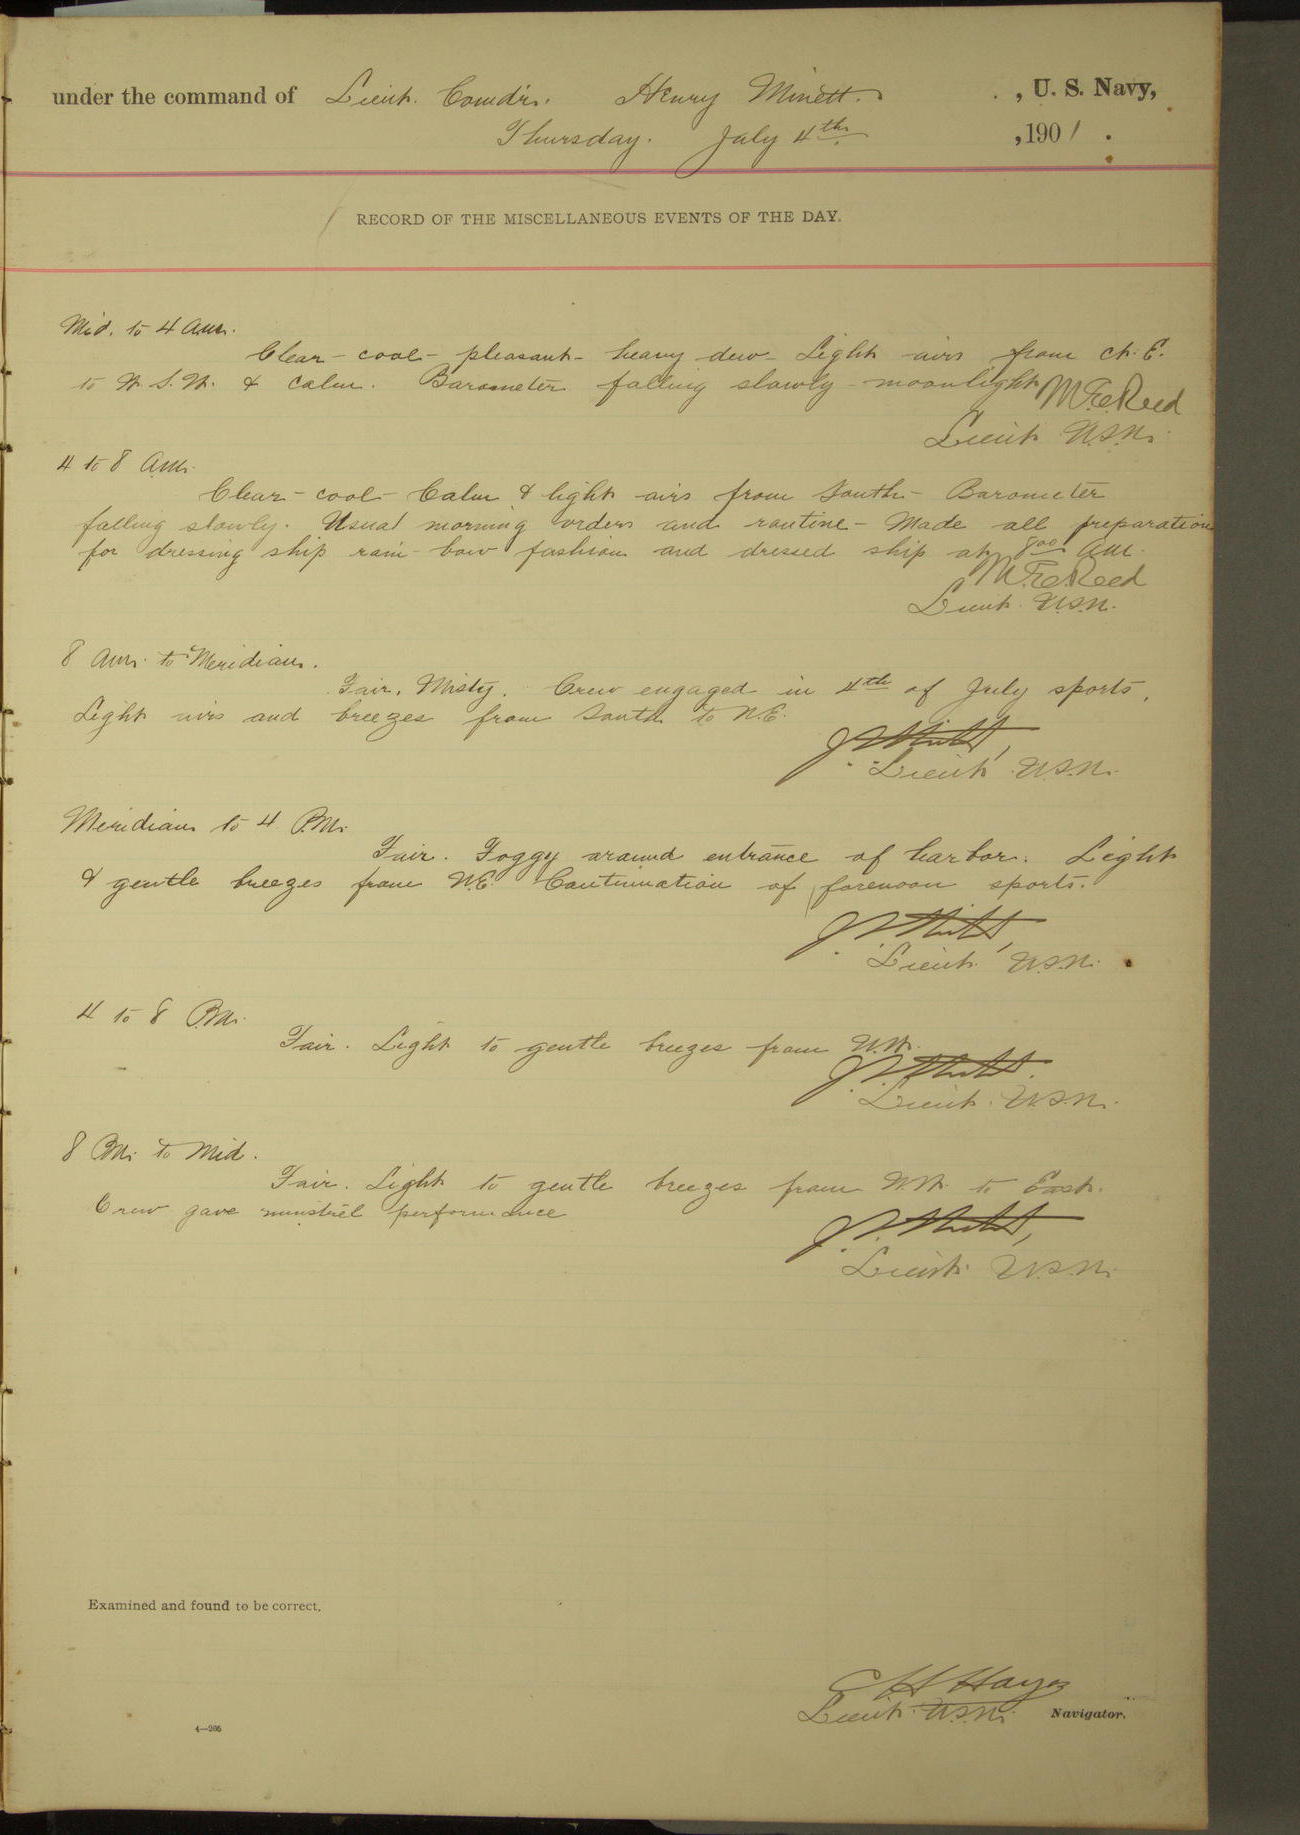 under the command of Lieut. Comdr. Henry Minett. , U. S. Navy,
Thursday. July 4th , 1901.
RECORD OF THE MISCELLANEOUS EVENTS OF THE DAY.
Mid. to 4 A.M.
Clear - cool - pleasant - heavy dew - Light airs from N.E.
to W.S.W. & calm. Barometer falling slowly - moonlight
Reed
Lieut. U.S.N.
4 to 8 A.M.
Clear - cool - Calm & light airs from South - Barometer
falling slowly. Usual morning orders and routine - Made all preparation
for dressing ship rain-bow fashion and dressed ship at 8 00 A.M.
Reed
Lieut. U.S.N.
8 A.M. to Meridian.
Fair, Misty. Crew engaged in 4th of July sports.
Light airs and breezes from South to N.E.
Lieut. U.S.N.
Meridian to 4 P.M.
Fair. Foggy around entrance of harbor. Light
& gentle breezes from N.E. Continuation of forenoon sports.
Lieut. U.S.N.
4 to 8 P.M.
Fair. Light to gentle breezes from N.W.
Lieut. U.S.N.
8 P.M. to Mid.
Fair. Light to gentle breezes from N.W. to East.
Crew gave minstrel performance
Lieut. U.S.N.
Examined and found to be correct.
E H Hayes
Lieut. U.S.N. Navigator.
4—266